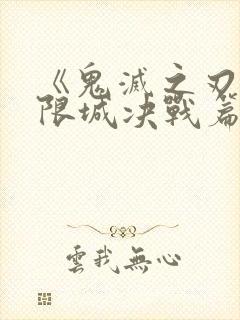 《鬼滅之刃
限城决戰篇
雲我無心